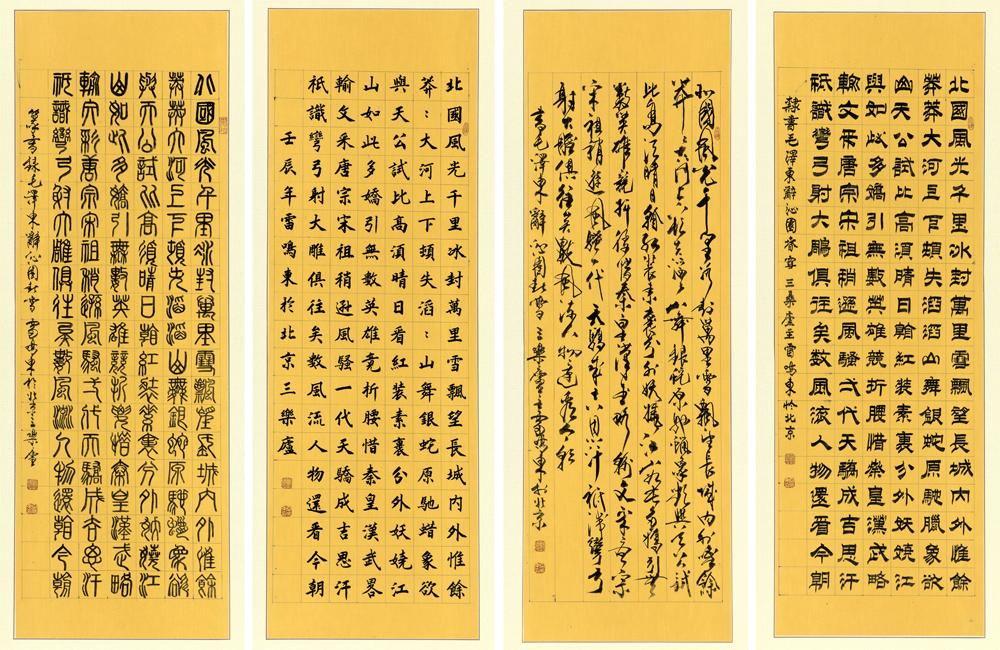 北國風光千里冰封萬里雪飄望長城內外惟餘
莽莽大河上下頓失滔滔山舞銀蛇原馳蠟象欲
與天公試比高須晴日看紅裝素裹分外妖嬈江
山如此多嬌引無數英雄競折腰惜秦皇漢武略
輸文采唐宗宋祖稍遜風騷一代天驕成吉思汗
祇識彎弓射大雕俱往矣數風流人物還看今朝
篆書錄毛澤東辭沁園春雪 雷鳴東於北京三樂廬
北國風光千里冰封萬里雪飄望長城内外惟餘
莽：大河上下頓失滔：山舞銀蛇原馳蜡象欲
與天公試比高須晴日看紅装素裹分外妖嬈江
山如此多嬌引無数英雄竞折腰惜秦皇漢武畧
輸文采唐宗宋祖稍遜風騷一代天驕成吉思汗
祇識彎弓射大雕俱往矣数風流人物還看今朝
壬辰年雷鳴東於北京三樂廬
北國風光千里冰封萬里雪飄望長城内外惟餘
莽莽大河上下頓失滔滔山舞銀蛇原馳蠟象欲與天公試
比高須晴日看紅装素裹分外妖嬈江山如此多嬌引無
數英雄競折腰惜秦皇漢武略輸文采唐宗
宋祖稍遜風騷一代天驕成吉思汗祇識彎弓
射大雕俱往矣數風流人物還看今朝
書毛澤東辭沁園春雪三樂廬主雷鳴東於北京
北國風光千里冰封萬里雪飄望長城内外惟餘
莽莽大河上下頓失滔滔山舞銀蛇原馳臘象欲
與天公試比高須晴日看紅装素裹分外妖嬈江
山如此多嬌引無數英雄競折腰惜秦皇漢武略
輸文采唐宗宋祖稍遜風騷一代天驕成吉思汗
祇識彎弓射大鵰俱往矣数風流人物還看今朝
隸書毛澤東辭沁園春雪 三樂廬主雷鳴東於北京